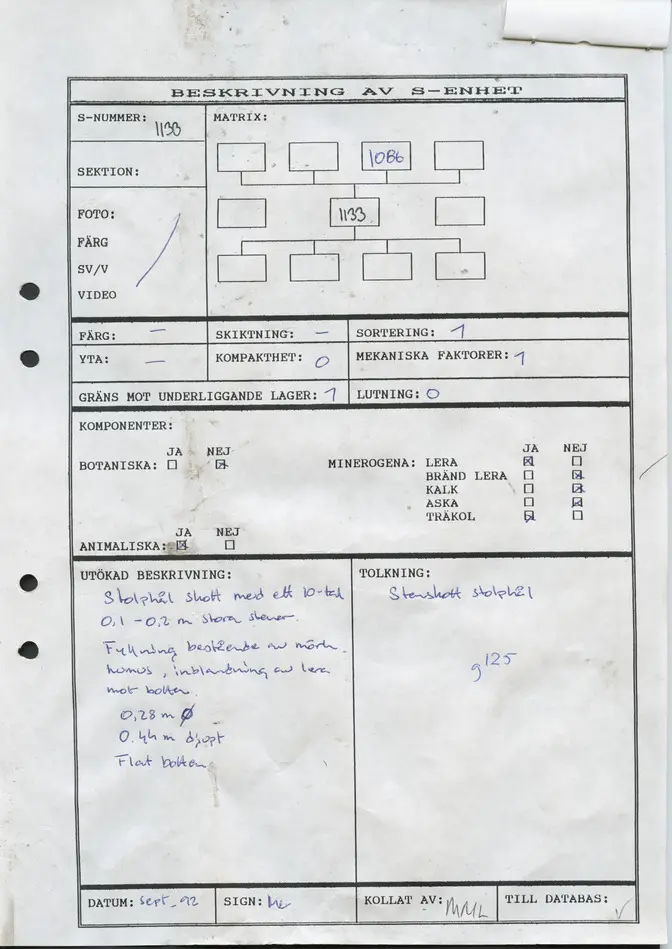 BESKRIVNING AV S-ENHET
S-NUMMER: 1133
MATRIX:
1086
SEKTION:
FOTO:
1133
FÄRG
SV/V
VIDEO
FÄRG: —
SKIKTNING: —
SORTERING: 1
YTA: —
KOMPAKTHET: 0
MEKANISKA FAKTORER: 1
GRÄNS MOT UNDERLIGGANDE LAGER: 1
LUTNING: 0
KOMPONENTER:
JA NEJ
BOTANISKA:
JA NEJ
MINEROGENA: LERA
BRÄND LERA
KALK
ASKA
TRÄKOL
JA NEJ
ANIMALISKA:
UTÖKAD BESKRIVNING:
Stolphål skott med ett 10-tal
0,1 - 0,2 m stora stenar.
Fyllning bestående av mörk
humus, inblandning av lera
mot botten.
0,28 m Ø
0.44 m djupt
Flat botten
TOLKNING:
Stenskott stolphål
g125
DATUM: Sept. 92
SIGN:
KOLLAT AV: MML
TILL DATABAS: √